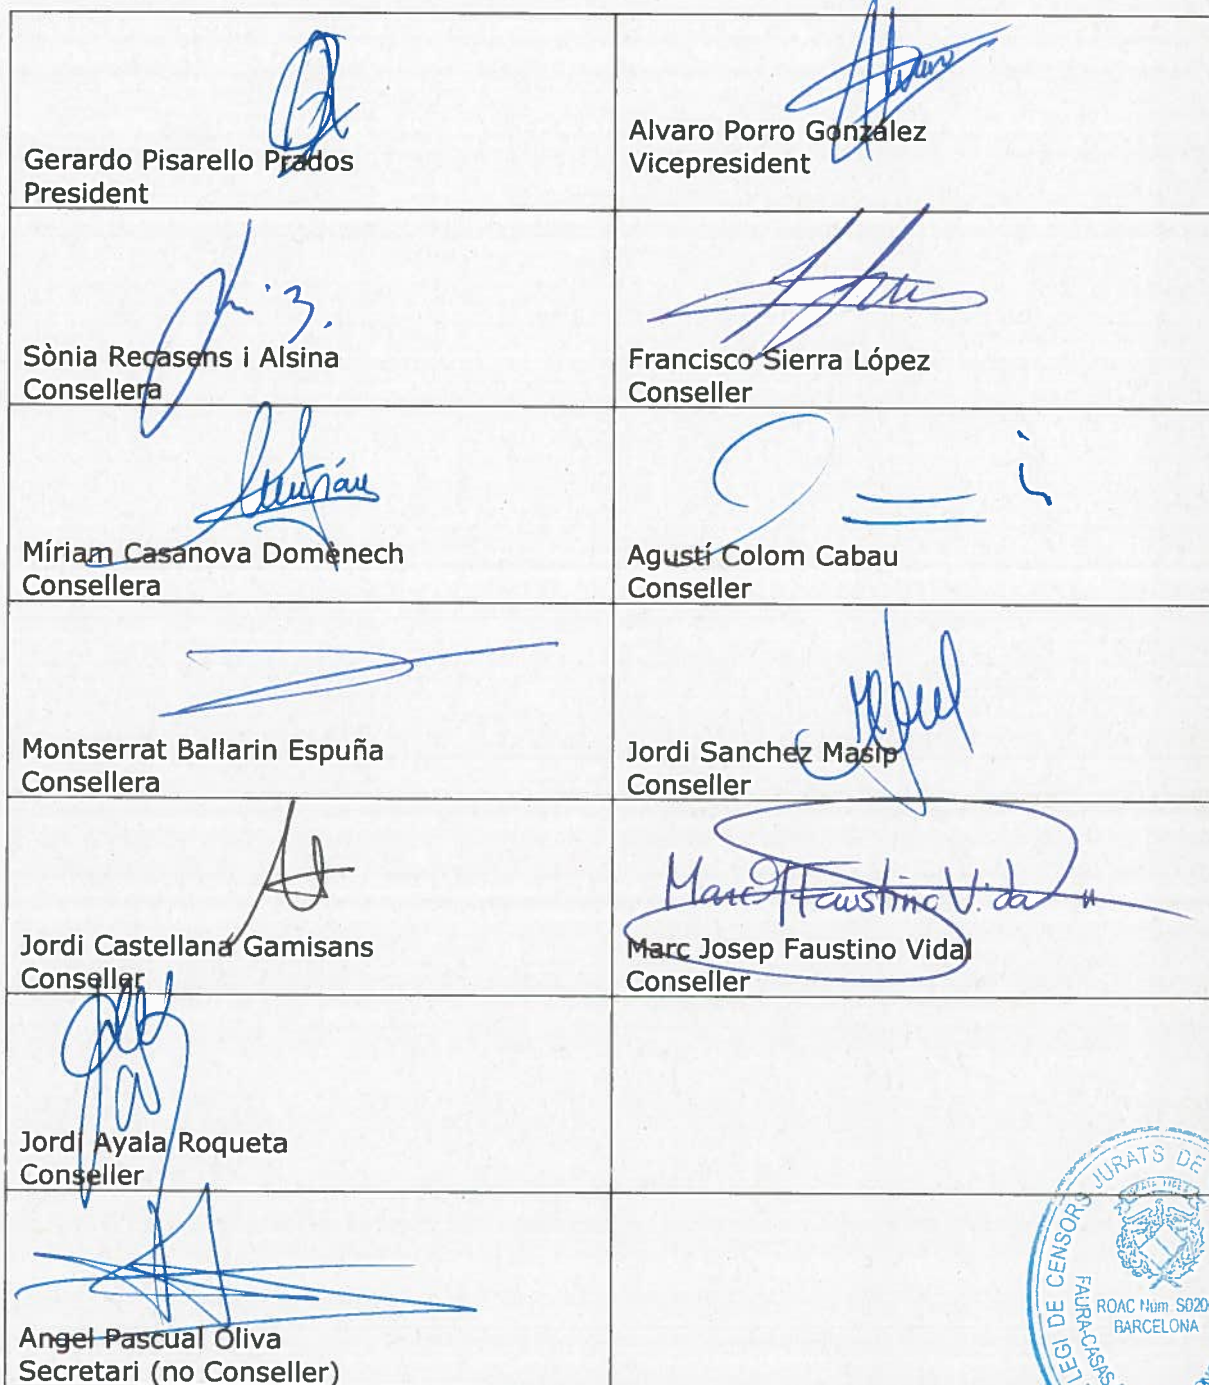 Gerardo Pisarello Prados
President
Alvaro Porro González
Vicepresident
Sònia Recasens i Alsina
Consellera
Francisco Sierra López
Conseller
Míriam Casanova Domènech
Consellera
Agustí Colom Cabau
Conseller
Montserrat Ballarin Espuña
Consellera
Jordi Sanchez Masip
Conseller
Jordi Castellana Gamisans
Conseller
Marc J Faustino Vidal
Marc Josep Faustino Vidal
Conseller
Jordi Ayala Roqueta
Conseller
Angel Pascual Oliva
Secretari (no Conseller)
LEGI DE CENSORS JURATS DE
FAURA-CASAS
ROAC Núm. S020
BARCELONA